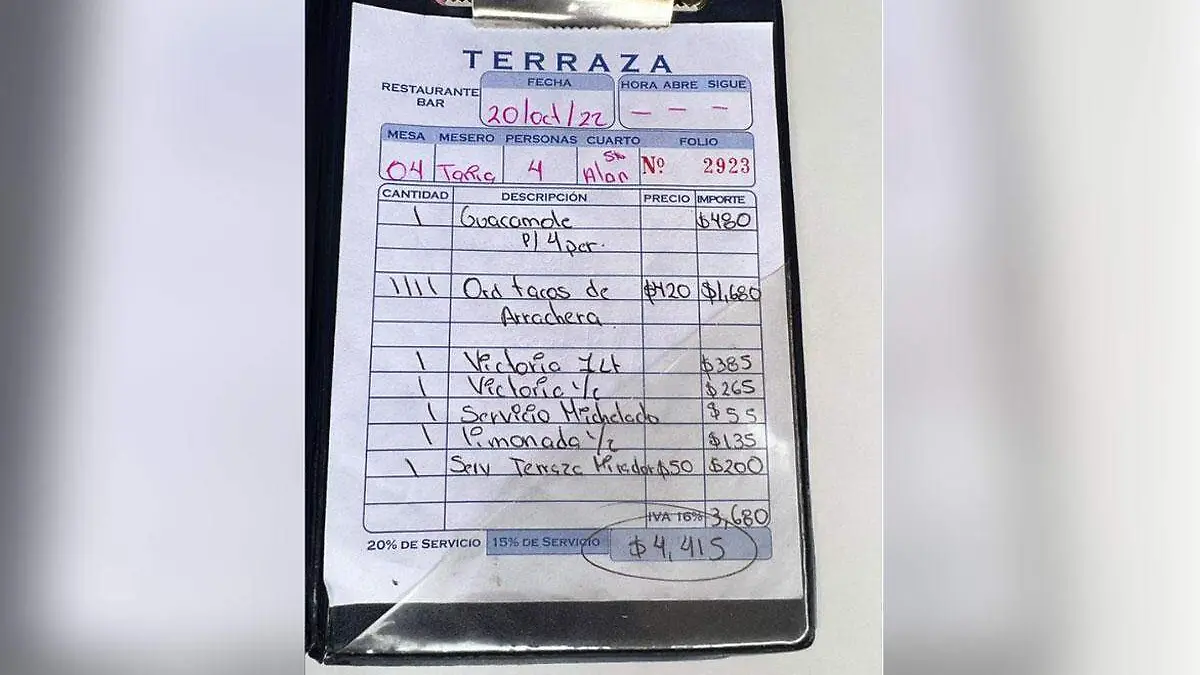 TERRAZA
RESTAURANTE BAR
FECHA
20/oct/22
HORA ABRE SIGUE
— — —
MESA MESERO PERSONAS CUARTO FOLIO
04 Tania 4 Alan Nº 2923
CANTIDAD DESCRIPCIÓN PRECIO IMPORTE
1 Guacamole $480
p/ 4 per.
1111 Ord tacos de $420 $1,680
Arrachera
1 Victoria 1Lt $385
1 Victoria c/c $265
1 Servicio Michelado $55
1 Limonada $135
1 Serv Terraza Mirador $50 $200
IVA 16% 3,680
20% DE SERVICIO 15% DE SERVICIO $4,415